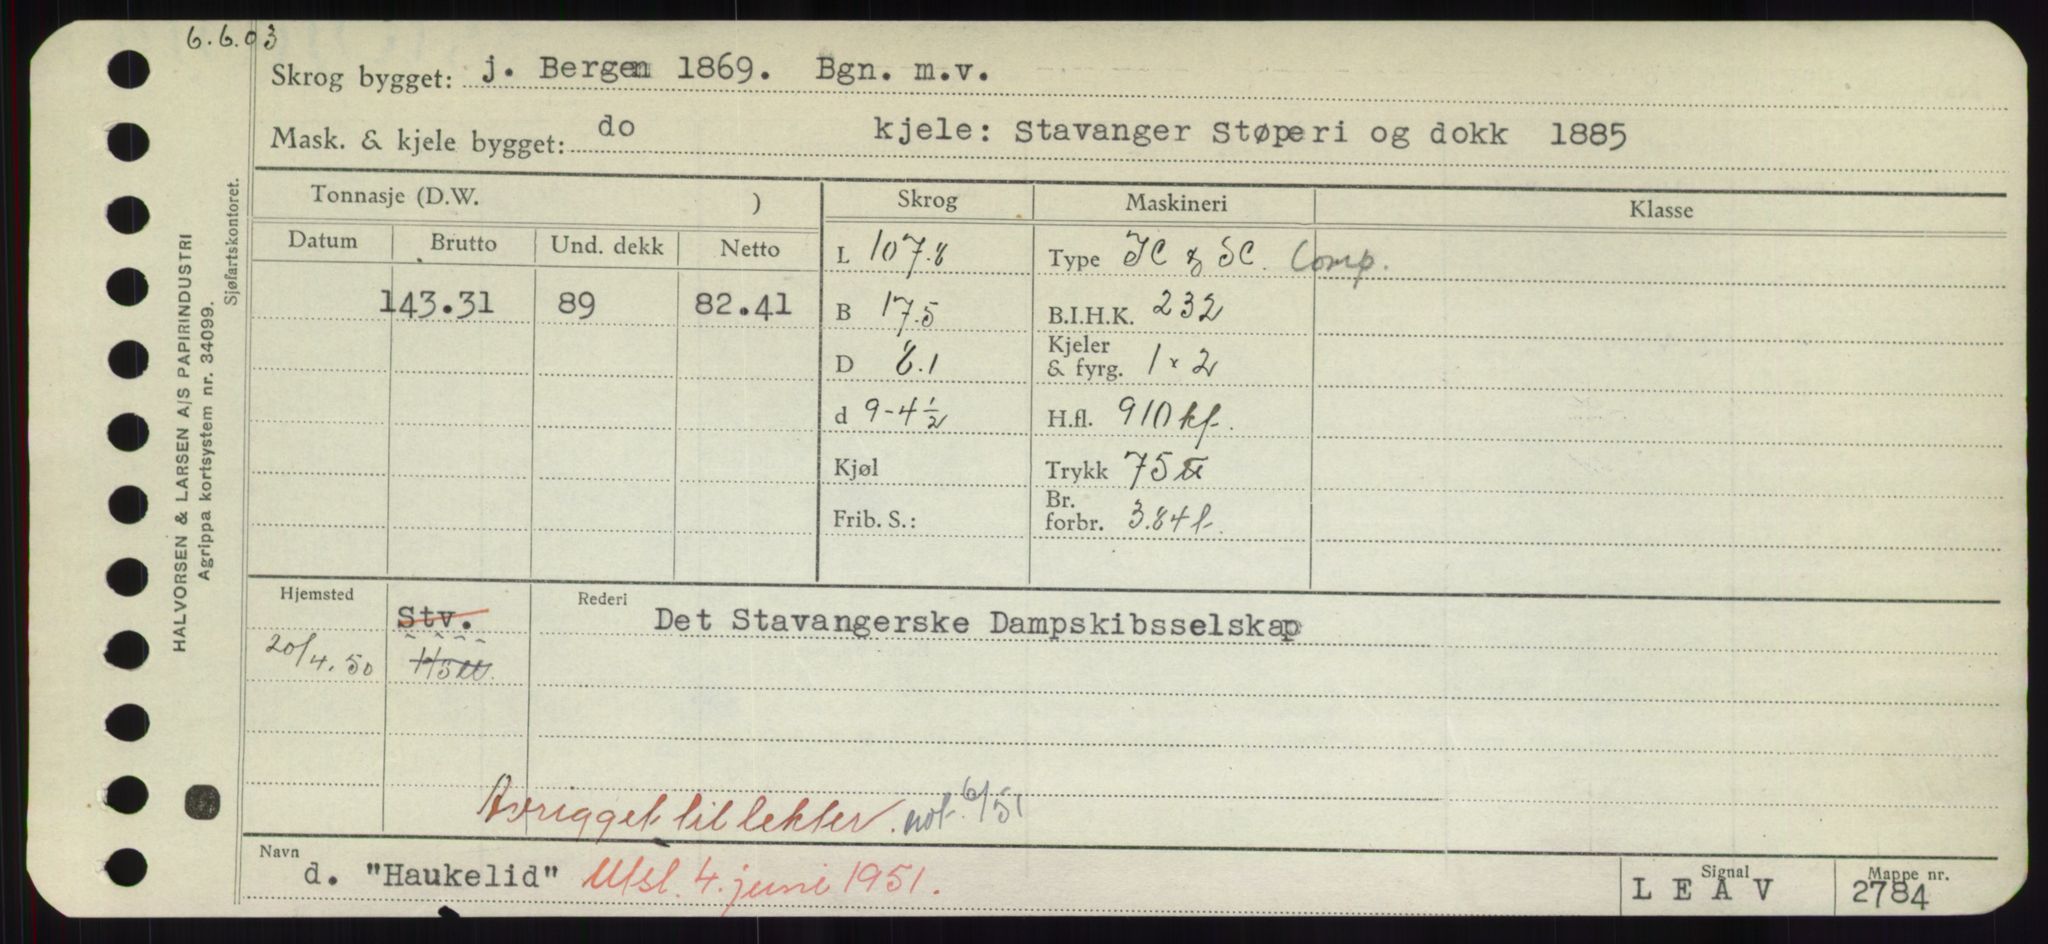 6.6.03
Skrog bygget: j. Bergen 1869. Bgn. m.v.
Mask. & kjele bygget: do kjele: Stavanger Støperi og dokk 1885
Tonnasje (D.W. ) Skrog Maskineri Klasse
Datum Brutto Und. dekk Netto
L 107.8 Type IC & SC. Comp.
143.31 89 82.41 B 17.5 B.I.H.K. 232
D 8.1 Kjeler & fyrg. 1 x 2
d 9-4½ H.fl. 910 kf.
Kjøl Trykk 75
Frib. S.: Br. forbr. 3.84 t.
Hjemsted Stv. Rederi Det Stavangerske Dampskibsselskap
20/4.50
Avrigget til lekter. not. 6/51
Navn d. "Haukelid" Utsl. 4. juni 1951. Signal L E A V Mappe nr. 2784
HALVORSEN & LARSEN A/S PAPIRINDUSTRI
Agrippa kortsystem nr. 34099.
Sjøfartskontoret.